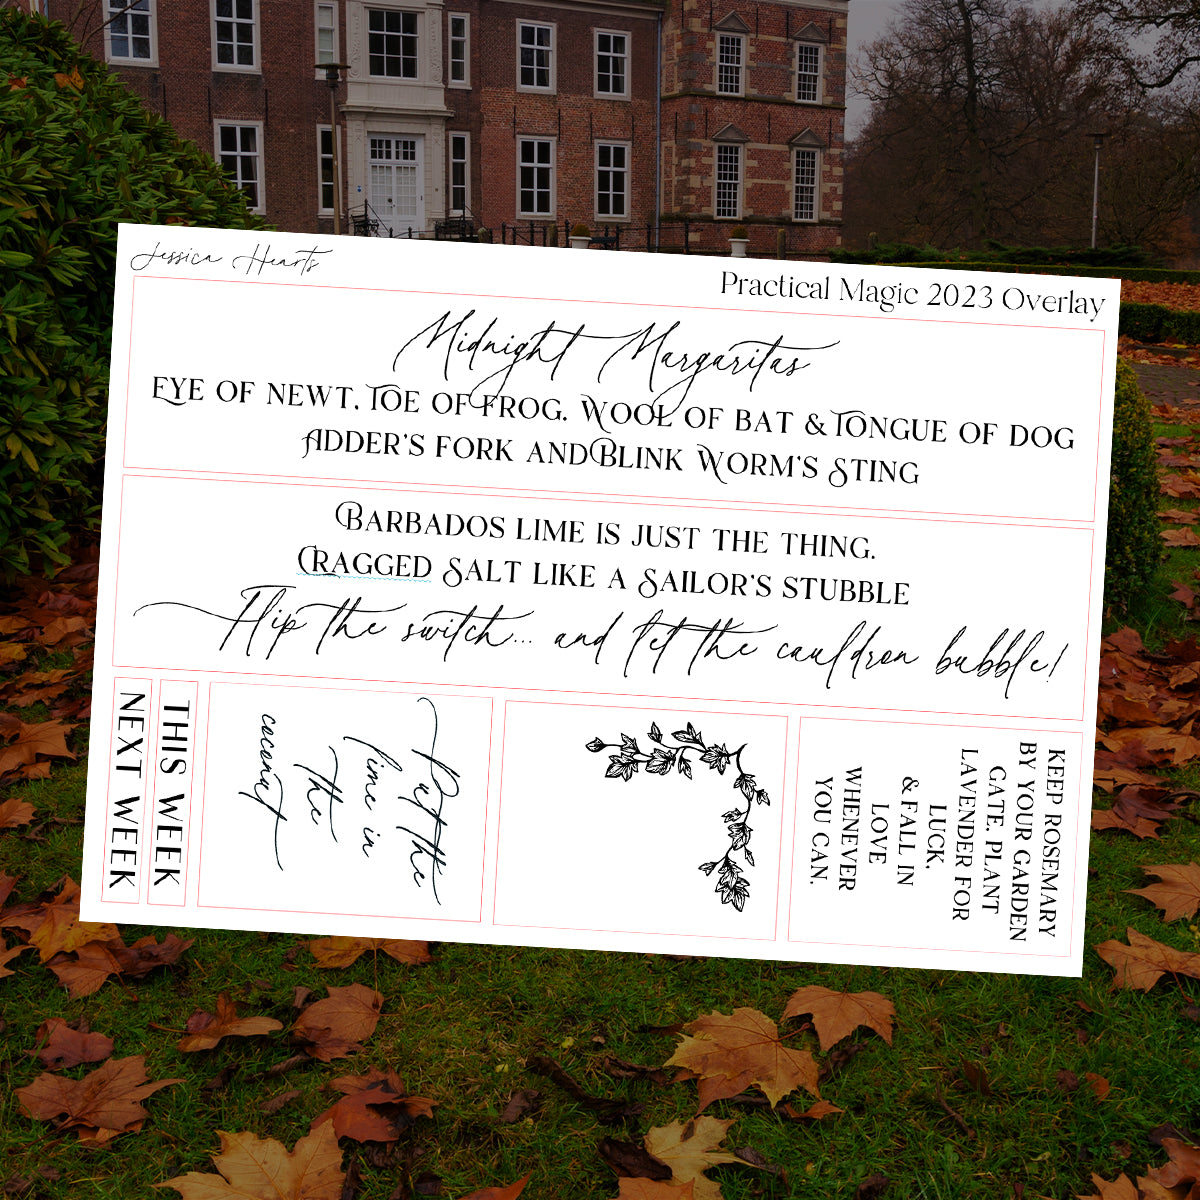 Jessica Hearts
Practical Magic 2023 Overlay
Midnight Margaritas
EYE OF NEWT, TOE OF FROG, WOOL OF BAT & TONGUE OF DOG
ADDER'S FORK AND BLINK WORM'S STING
BARBADOS LIME IS JUST THE THING.
CRAGGED SALT LIKE A SAILOR'S STUBBLE
Flip the switch... and let the cauldron bubble!
THIS WEEK
NEXT WEEK
Put the
lime in
the
coconut
KEEP ROSEMARY
BY YOUR GARDEN
GATE. PLANT
LAVENDER FOR
LUCK,
& FALL IN
LOVE
WHENEVER
YOU CAN.